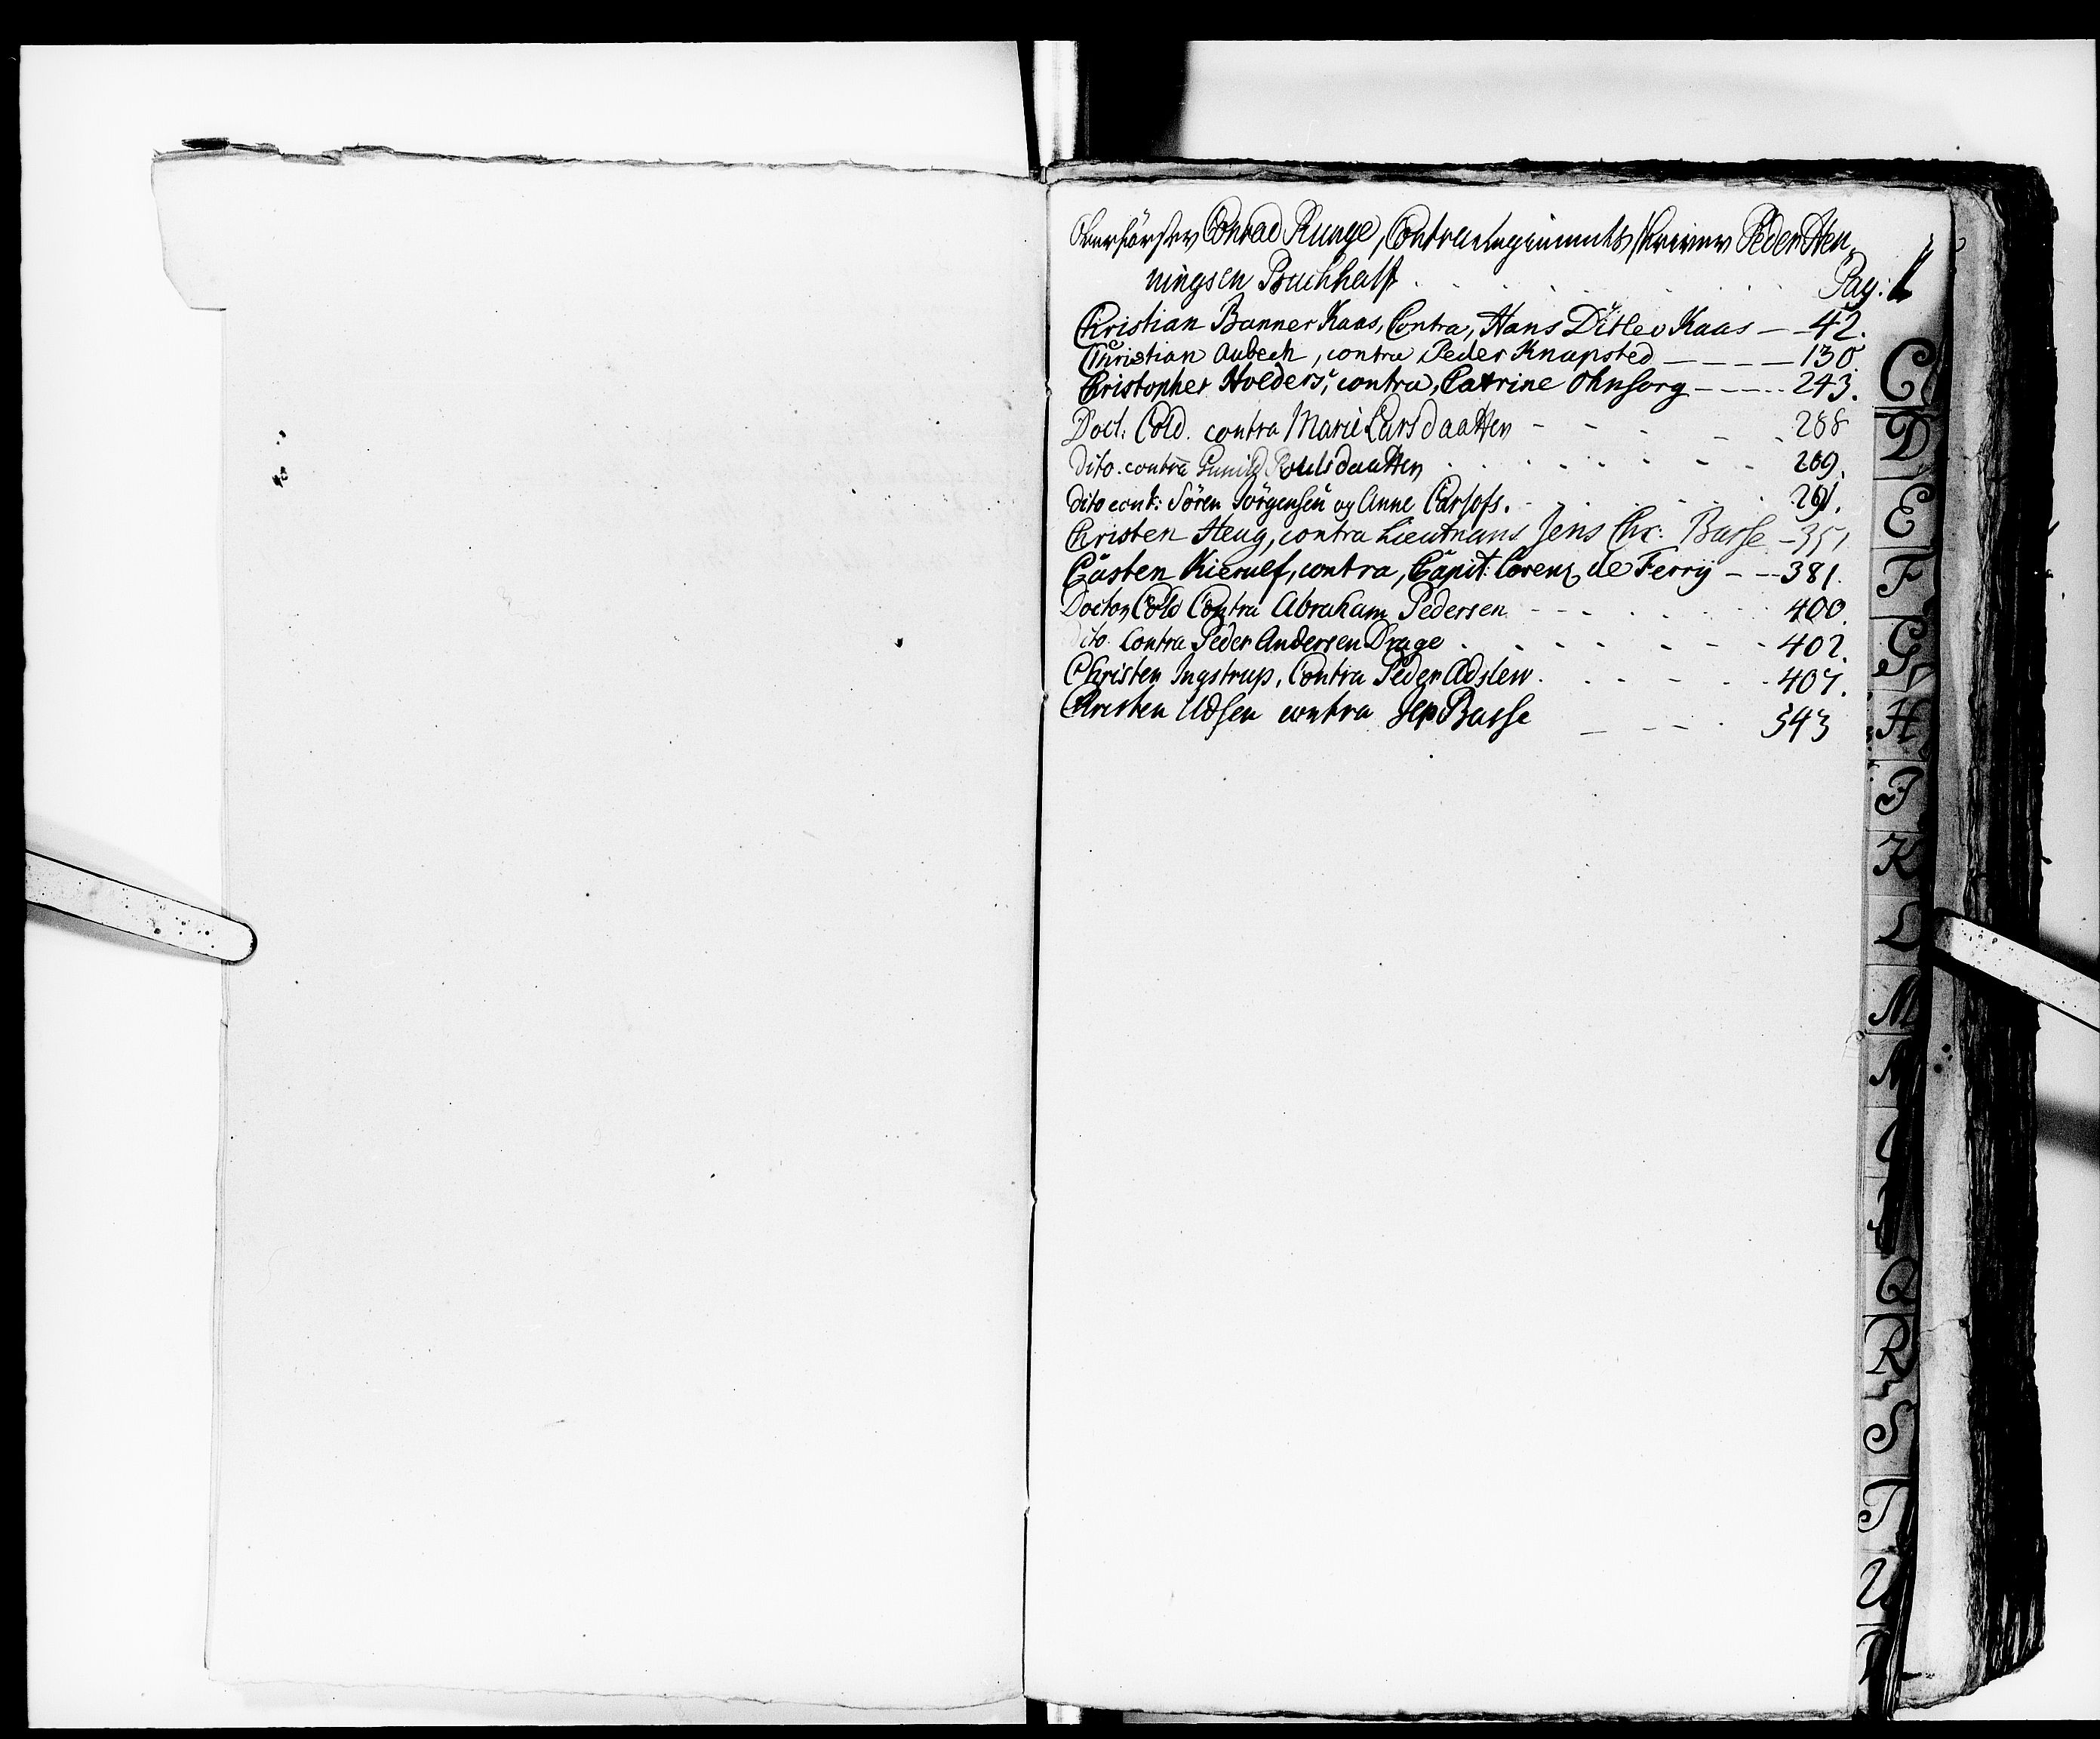 Oberförster Conrad Runge, Contra Regiments skriver Peder Hen-
ningsen Buchhalf . . . . . . Pag: 1
Christian Banner Kaas, Contra, Hans Ditlev Kaas — 42.
Christian Aubech, contra Peder Knapsted — — — — 130
Christopher Holders; contra, Catrine Ohnsorg — — — 243.
Doct. Cold. contra Marie Larsdaatter - - - - - 288
Dito. contra Gunild Poulsdaatter . . . . . . 289.
dito cont: Sören Jörgensen og Anne . . . . . 291.
Christen Heug, contra Lieutnans Jens Chr: Basse - 351
Casten Kierulf, contra, Capit: Lorenz de Ferrÿ — — 381.
Doctor Cold Contra Abraham Pedersen - - - . . 400.
dito. Contra Peder Andersen Drage . . - - - 402.
Christen Ingstrup, Contra Peder Adslew . . - - . 407.
Christen Udsen contra Jep Basse — — - . 543
C
D
E
F
G
H
I
K
L
M
N
Q
R
S
T
V